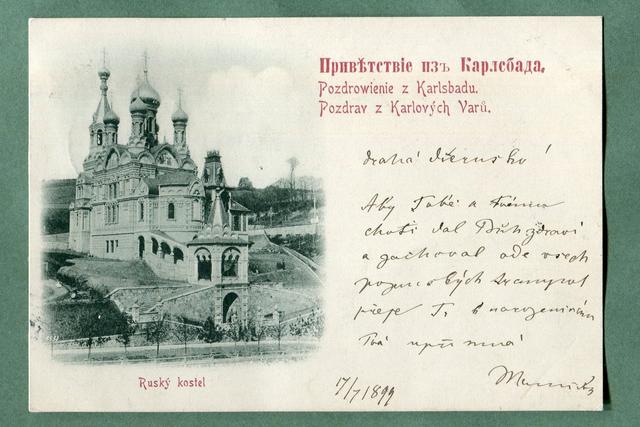 Привѣтствіе изъ Карлсбада.
Pozdrowienie z Karlsbadu.
Pozdrav z Karlových Varů.
drahá
Aby Tobě a
choti dal Bůh zdraví
a zachoval ode všech
přeje Ti k narozeninám
Tvá upřímná
Ruský kostel
17/7 1899